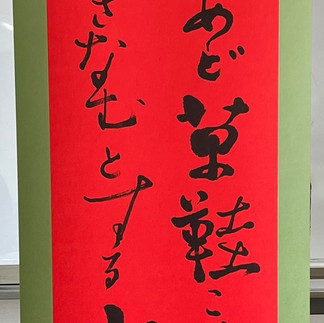 めど草鞋こ
さなむとする